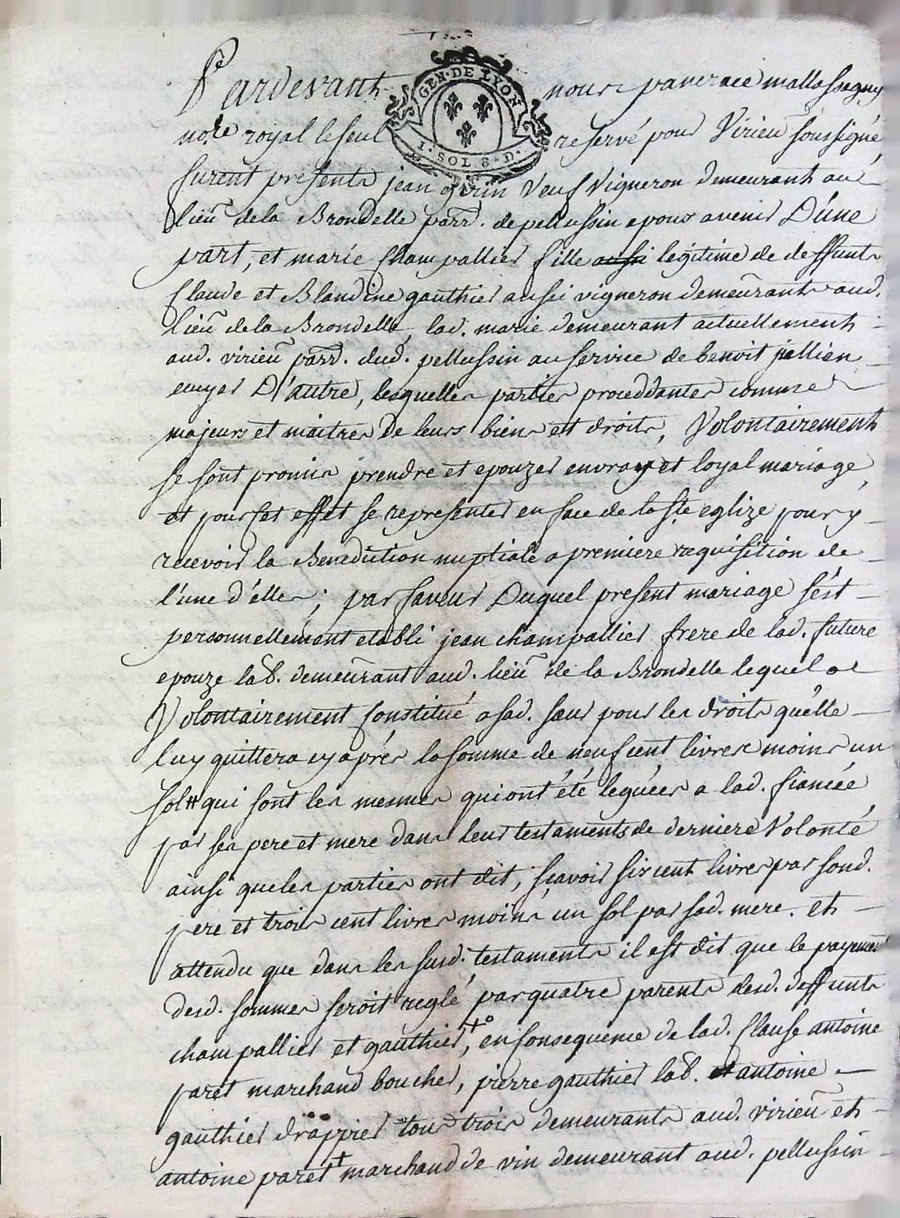 GEN·DE LYON
1·SOL 8·D·
Pardevant nous pancrace mallassagny
no.re royal le seul reservé pour Virieu soussigné
furent presents jean Veuf Vigneron demeurant au
lieu de la Brondelle parr. de pellussin epoux avenir D'une
part, et marie Champallier fille aussi legitime de deffunts
Claude et Blandine gauthier aussi vigneron demeurants aud.
lieu de la Brondelle, lad. marie demeurant actuellement
aud. virieu parr. dud. pellussin au service de benoit jullien
D'autre, lesquelles parties proceddantes comme
majeurs et maitres de leurs biens et droits, Volontairement
se sont promis prendre et epouzer en vray et loyal mariage,
et pour cet effet se representer en face de la ste eglize pour y
recevoir la Benediction nuptiale a premiere requisition de
l'une d'elles; par faveur Duquel present mariage s'est
personnellement etabli jean champallier frere de lad. future
epouze lab. demeurant aud. lieu de la Brondelle lequel a
Volontairement Constitué a sad. sœur pour les droits qu'elle
luy quittera cy après la somme de neuf cent livres moins un
sol # qui sont les mesmes qui ont été leguées a lad. fiancée
par ses pere et mere dans leurs testaments de derniere Volonté
ainsi que les parties ont dit, sçavoir six cent livres par sond.
pere et trois cent livres moins un sol par sad. mere. et
attendu que dans les susd. testaments il est dit que le payement
desd. sommes seroit reglé par quatre parents desd. deffunts
champallier et gauthier +°, en Consequence de lad. Clause antoine
paret marchand boucher, pierre gauthier lab. et antoine
gauthier drappier tous trois demeurants aud. virieu et
antoine paret + marchand de vin demeurant aud. pellussin